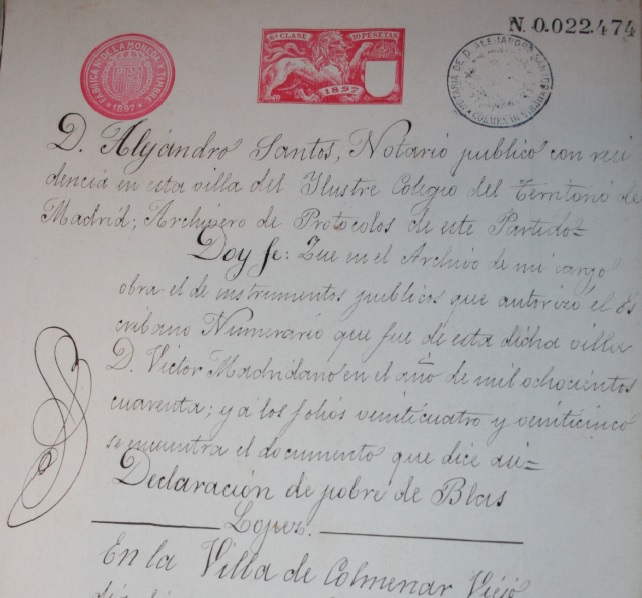 N. 0.022.474
5ª CLASE 10 PESETAS
1897
FABRICA DE LA MONEDA Y TIMBRE
1897
NOTARIA DE D. ALEJANDRO SANTOS
COLMENAR VIEJO
D. Alejandro Santos, Notario publico con resi
dencia en esta villa del Ilustre Colegio del Territorio de
Madrid; Archivero de Protocolos de este Partido=
Doy fe: Que en el Archivo de mi cargo
obra el de instrumentos publicos que autorizó el Es
cribano Numerario que fue de esta dicha villa
D. Victor Madridano en el año de mil ochocientos
cuarenta; y á los folios veinticuatro y veinticinco
se encuentra el documento que dice asi=
Declaración de pobre de Blas
Lopez.
En la Villa de Colmenar Viejo